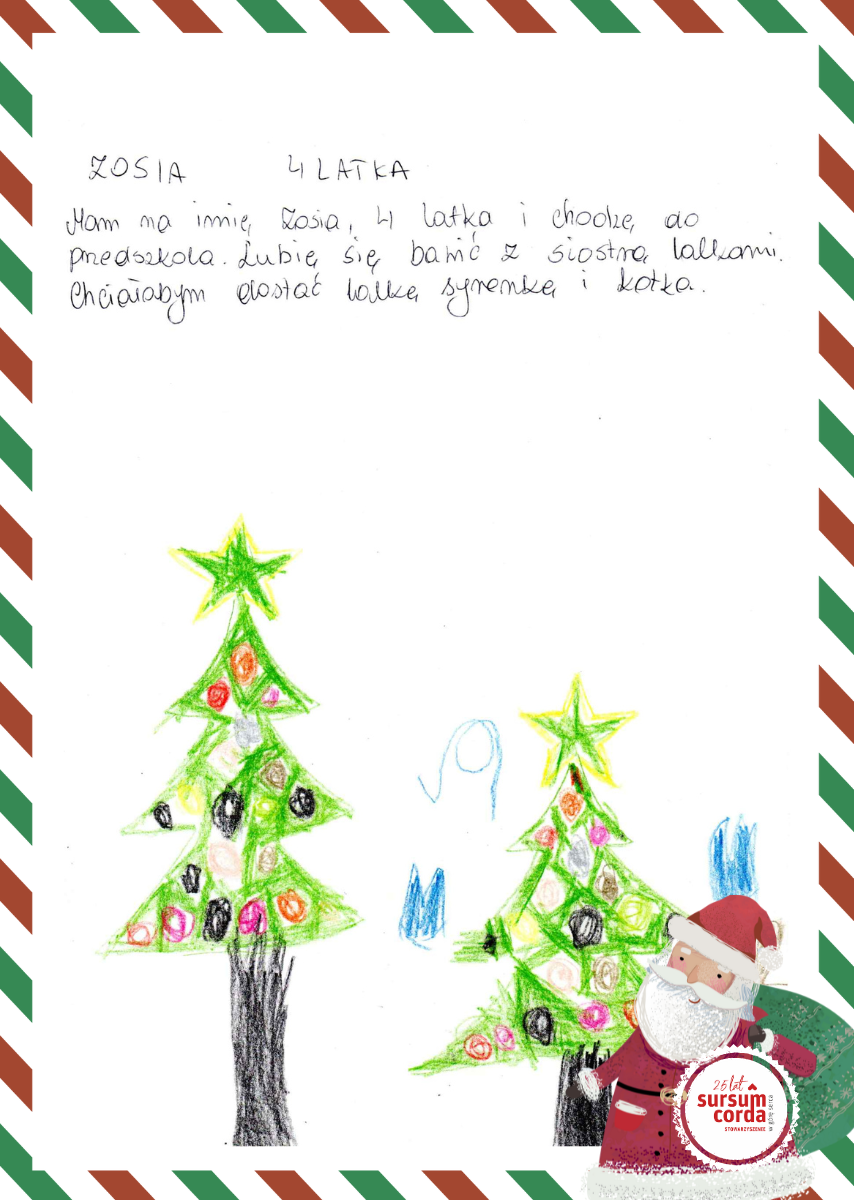 ZOSIA 4 LATKA
Mam na imię Zosia, 4 latka i chodzę do
przedszkola. Lubię się bawić z siostrą lalkami.
Chciałabym dostać lalkę syrenkę i kotka.
26 lat
sursum
corda
STOWARZYSZENIE
w górę serca